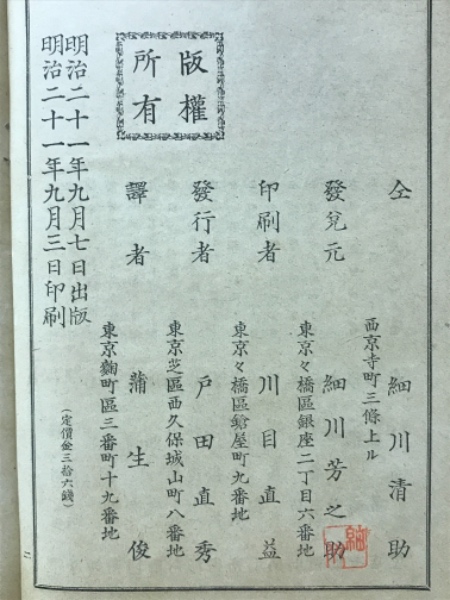 明治二十一年九月三日印刷
明治二十一年九月七日出版
(定價金三拾六錢)
版權
所有
東京麹町區三番町十九番地
譯者 蒲生俊
東京芝區西久保城山町八番地
發行者 戸田直秀
東京々橋區鎗屋町九番地
印刷者 川目直益
東京々橋區銀座二丁目六番地
發兌元 細川芳之助
西京寺町三條上ル
仝 細川清助
二